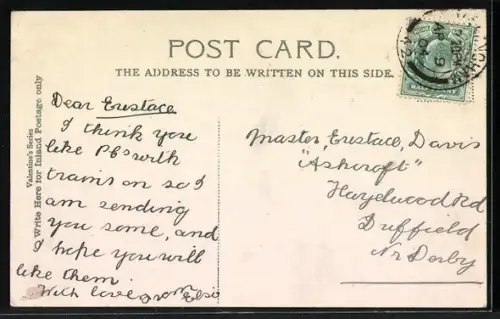 POST CARD.
THE ADDRESS TO BE WRITTEN ON THIS SIDE.
Valentine's Series
Write Here for Inland Postage only
Dear Eustace
I think you
like P.Cs with
trains on so I
am sending
you some, and
I hope you will
like them.
With love from Elsie
Master Eustace Davis
"Ashcroft"
Hazelwood Rd
Duffield
Nr Derby
HALFPENNY